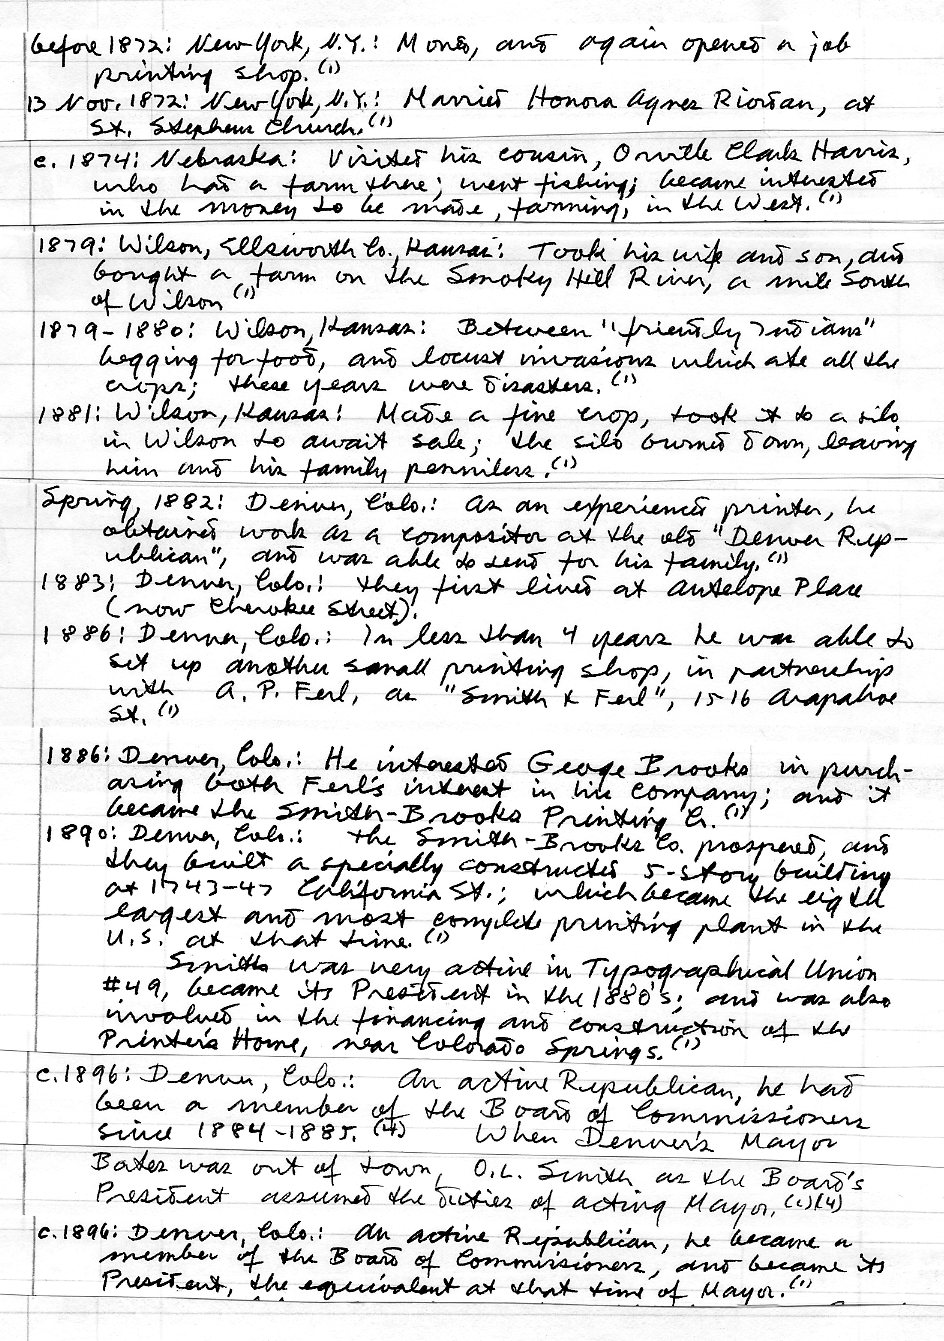 before 1872: New York, N.Y.: Moved, and again opened a job
printing shop.(1)
13 Nov. 1872: New York, N.Y.: Married Honora Agnes Riordan, at
St. Stephens Church.(1)
c. 1874: Nebraska: Visited his cousin, Orville Clark Harris,
who had a farm there; went fishing; became interested
in the money to be made, farming, in the West.(1)
1879: Wilson, Ellsworth Co., Kansas: Took his wife and son, and
bought a farm on the Smokey Hill River, a mile South
of Wilson(1)
1879-1880: Wilson, Kansas: Between "friendly Indians"
begging for food, and locust invasions which ate all the
crops; these years were disasters.(1)
1881: Wilson, Kansas: Made a fine crop, took it to a silo
in Wilson to await sale; the silo burned down, leaving
him and his family penniless.(1)
Spring, 1882: Denver, Colo.: As an experienced printer, he
obtained work as a compositor at the old "Denver Rep-
ublican", and was able to send for his family.(1)
1883: Denver, Colo.: They first lived at Antelope Place
(now Cherokee Street).
1886: Denver, Colo.: In less than 4 years he was able to
set up another small printing shop, in partnership
with A. P. Ferl, as "Smith & Ferl", 1516 Arapahoe
St.(1)
1886: Denver, Colo.: He interested George Brooks in purch-
asing both Ferl's interest in his company; and it
became the Smith-Brooks Printing Co.(1)
1890: Denver, Colo.: The Smith-Brooks Co. prospered, and
they built a specially constructed 5-story building
at 1743-47 California St.; which became the eigth
largest and most complete printing plant in the
U.S. at that time.(1)
Smith was very active in Typographical Union
#49, became its President in the 1880's; and was also
involved in the financing and construction of the
Printer's Home, near Colorado Springs.(1)
c.1896: Denver, Colo.: An active Republican, he had
been a member of the Board of Commissioners
since 1884-1885.(4) When Denver's Mayor
Bates was out of town, O.L. Smith as the Board's
President assumed the duties of acting Mayor.(1)(4)
c.1896: Denver, Colo.: An active Republican, he became a
member of the Board of Commissioners, and became its
President, the equivalent at that time of Mayor.(1)